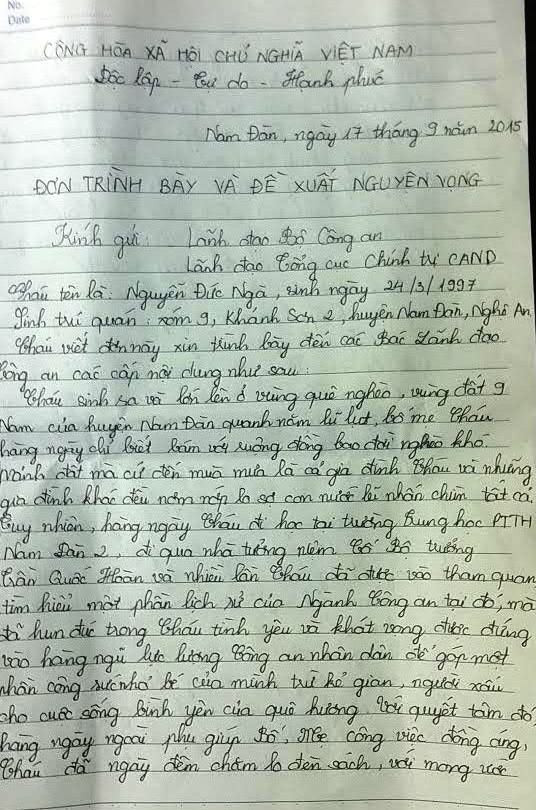 No.
Date
CỘNG HÒA XÃ HỘI CHỦ NGHĨA VIỆT NAM
Độc lập - Tự do - Hạnh phúc
Nam Đàn, ngày 17 tháng 9 năm 2015
ĐƠN TRÌNH BÀY VÀ ĐỀ XUẤT NGUYỆN VỌNG
Kính gửi: Lãnh đạo Bộ Công an
Lãnh đạo Tổng cục Chính trị CAND
Cháu tên là: Nguyễn Đức Ngà, sinh ngày 24/3/1997
Sinh trú quán: xóm 9, Khánh Sơn 2, huyện Nam Đàn, Nghệ An
Cháu viết đơn này xin trình bày đến các Bác Lãnh đạo
Công an các cấp nội dung như sau:
Cháu sinh ra và lớn lên ở vùng quê nghèo, vùng đất 9
Nam của huyện Nam Đàn quanh năm lũ lụt, bố mẹ Cháu
hàng ngày chỉ biết bám với ruộng đồng bao đời nghèo khó.
Mảnh đất mà cứ đến mùa mưa là cả gia đình Cháu và những
gia đình khác đều nơm nớp lo sợ con nước lũ nhấn chìm tất cả.
Tuy nhiên, hàng ngày Cháu đi học tại trường Trung học PTTH
Nam Đàn 2, đi qua nhà tưởng niệm Cố Bộ trưởng
Trần Quốc Hoàn và nhiều lần Cháu đã được vào tham quan
tìm hiểu một phần lịch sử của Ngành Công an tại đó, mà
đã hun đúc trong Cháu tình yêu và khát vọng được đứng
vào hàng ngũ lực lượng Công an nhân dân để góp một
phần công sức nhỏ bé của mình trừ kẻ gian, người xấu
cho cuộc sống bình yên của quê hương. Với quyết tâm đó,
hàng ngày ngoài phụ giúp Bố, Mẹ công việc đồng áng,
Cháu đã ngày đêm chăm lo đèn sách, với mong ước